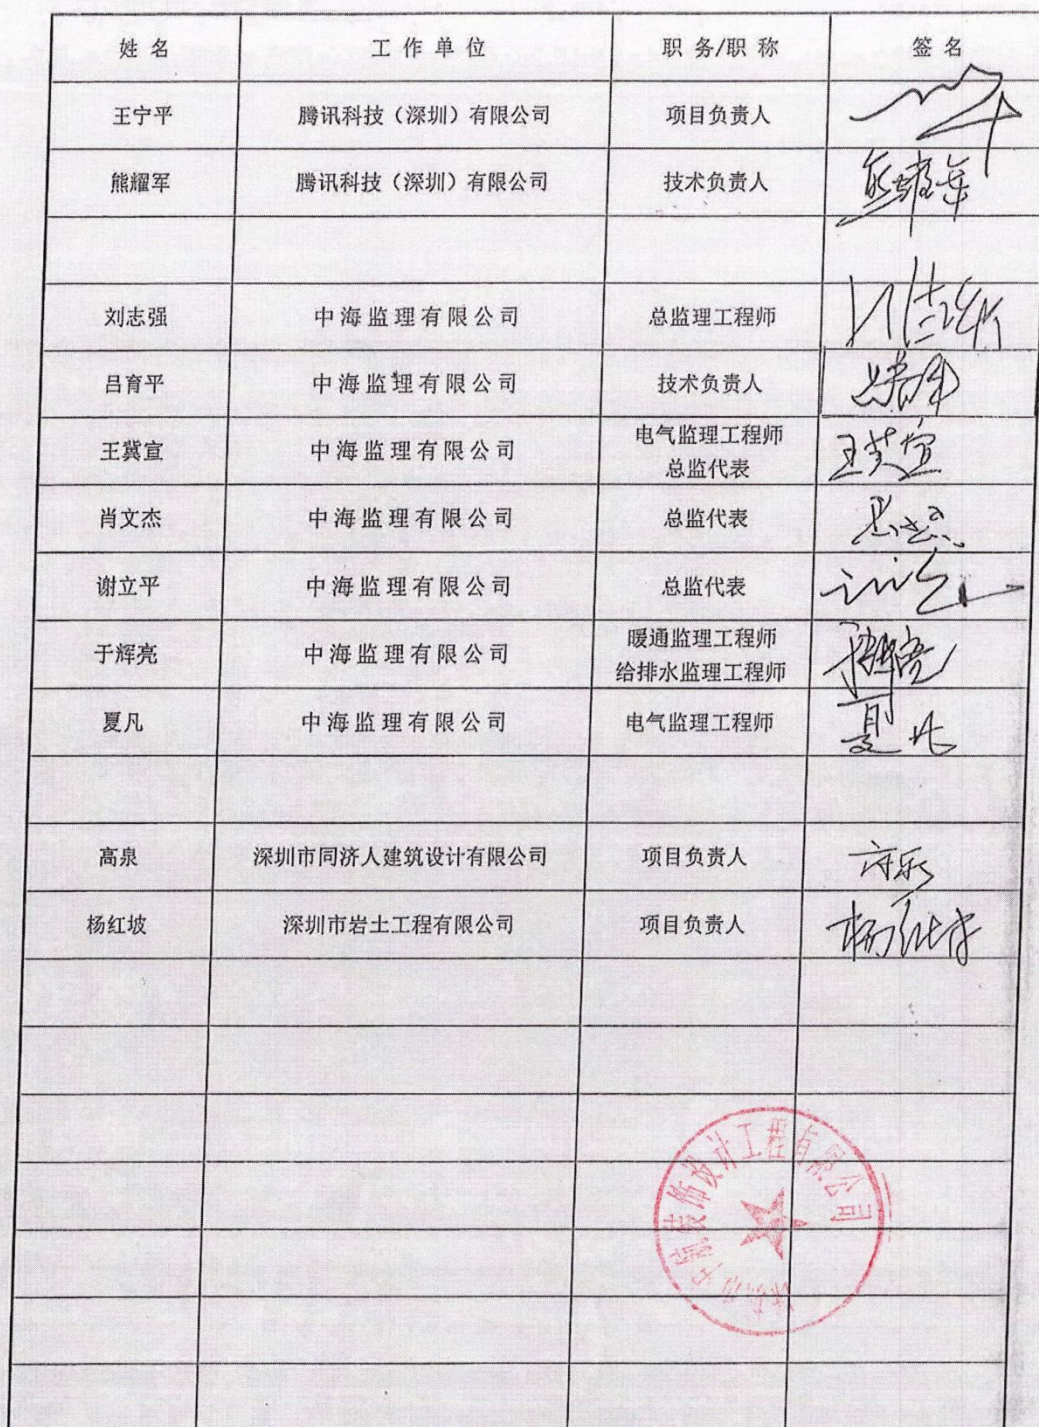 姓 名 工 作 单 位 职 务/职 称 签 名
王宁平 腾讯科技（深圳）有限公司 项目负责人
熊耀军 腾讯科技（深圳）有限公司 技术负责人 熊耀军
刘志强 中海监理有限公司 总监理工程师 刘志强
吕育平 中海监理有限公司 技术负责人
王冀宣 中海监理有限公司 电气监理工程师 王冀宣
总监代表
肖文杰 中海监理有限公司 总监代表
谢立平 中海监理有限公司 总监代表
于辉亮 中海监理有限公司 暖通监理工程师 于辉亮
给排水监理工程师
夏凡 中海监理有限公司 电气监理工程师 夏凡
高泉 深圳市同济人建筑设计有限公司 项目负责人
杨红坡 深圳市岩土工程有限公司 项目负责人 杨红坡
装饰设计工程有限公司